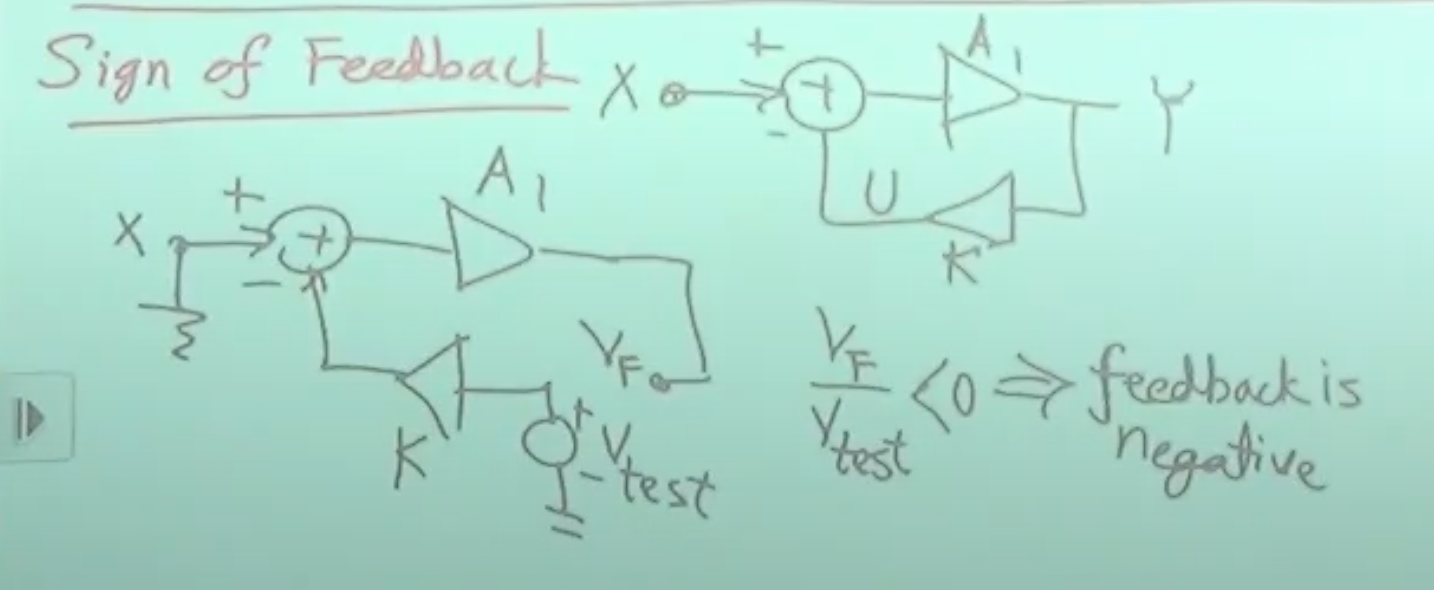 Sign of Feedback
X + + - A1 Y
U
K
X + + - A1
VF
K + Vtest -
VF/Vtest < 0 ⇒ feedback is negative